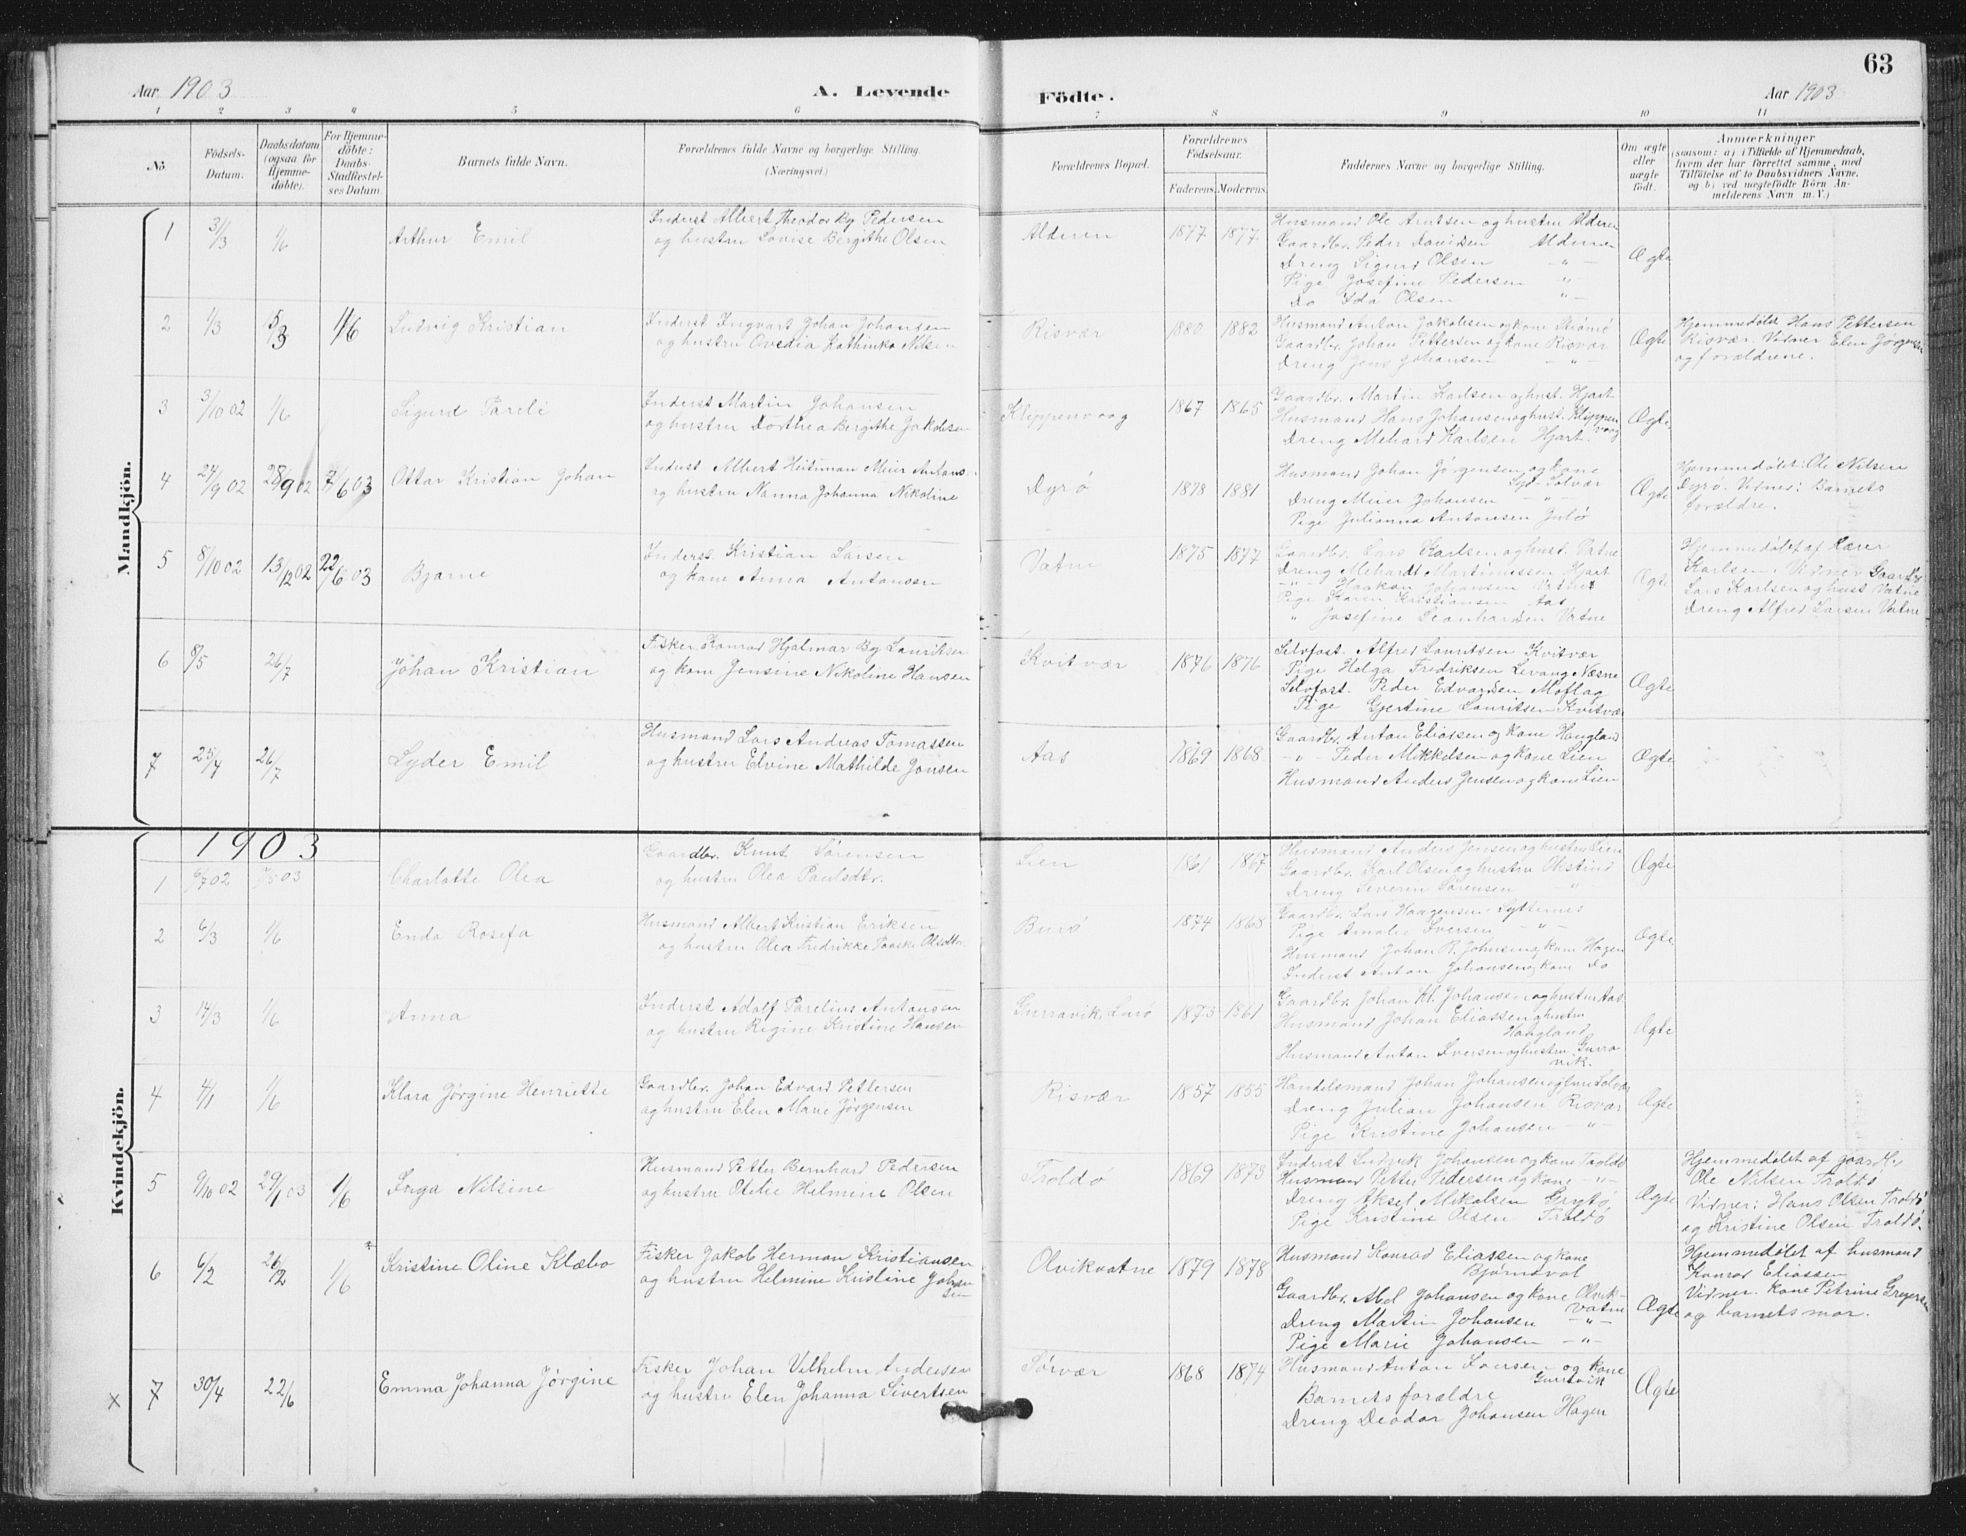 63
Aar 1903
A. Levende
Födte.
Aar 1903
1 2 3 4 5 6 7 8 9 10 11
No.
Födsels-Datum.
Daabsdatum (ogsaa for Hjemme-döbte).
For Hjemme-döbte: Daabs-Stadfæstel-ses Datum
Barnets fulde Navn.
Forældrenes fulde Navne og borgerlige Stilling (Næringsvei)
Forældrenes Bopæl.
Forældrenes Födselsaar.
Faderens. Moderens.
Faddernes Navne og borgerlige Stilling.
Om ægte eller uægte födt.
Anmærkninger
(saasom: a) i Tilfælde af Hjemmedaab, hvem der har forrettet samme, med Tilföielse af to Daabsvidners Navne, og b) ved uægtefödte Börn An-melderens Navn m. V.)
Mandkjön.
1 31/3 1/6 Arthur Emil
Inderst Albert Theodor Bg Pedersen
og hustru Lovise Bergithe Olsen
Alderen 1877 1877
Husmand Ole Arntsen og hustru Alderen
Gaardbr. Peder Davidsen Alderen
Dreng Sigurd Olsen - " -
Pige Josefine Pedersen "
Do Ida Olsen " -
Ægte
2 1/3 5/3 1/6 Ludvig Kristian
Inderst Ingvart Johan Johansen
og hustru Ovedia Kathinka Nilsen
Risvær 1880 1882
Husmand Anton Jakobsen og kone
Gaardbr. Johan Pettersen og kone Risvær
Dreng Jens Johansen - " -
Ægte
Hjemmedøbt Hans Pettersen
Risvær. Vidner Elen Jørgensen
og forældrene.
3 3/10 02 1/6 Sigurd Pareli
Inderst Martin Johansen
og hustru Dorthea Bergithe Jakobsen
Kleppenvaag 1867 1865
Gaardbr. Martin Karlsen og hust. Hjart
Husmand Hans Johansen og hust. Kleppenvaag
Dreng Mehard Karlsen Hjart.
Ægte
4 24/9 02 28/9 02 7/6 03 Ottar Kristian Johan
Inderst Albert Hitman Meier Antons
og hustru Nanna Johanna Nikoline
Dyrø 1878 1881
Husmand Johan Jørgensen og kone
Syd-Solvær
Dreng Meier Johansen - " -
Pige Julianna Antonsen Julø
Ægte
Hjemmedøbt: Ole Nilsen
Dyrø. Vidner: Barnets
forældre.
5 8/10 02 13/12 02 22/6 03 Bjarne
Inderst Kristian Larsen
og kone Anna Antonsen
Vatne 1875 1877
Gaardbr. Lars Karlsen og hust. Vatne
Dreng Mehardt Martinussen Hjart
- " - Haakon Johansen Vatnet
Pige Karen Kristiansen Aas
" Josefine Leonhardsen Vatne
Ægte
Hjemmedøbt af Lærer
Karlsen. Vidner Gaardbr.
Lars Karlsen og hust Vatne
Dreng Alfred Larsen Vatne
6 8/5 26/7 Johan Kristian
Fisker Konrad Hjalmar Bg Lauritsen
og kone Jensine Nikoline Hansen
Kvitvær 1876 1876
Selvfost. Alfred Lauritsen Kvitvær
Pige Helga Fredriksen Levang Næsne
Selvfost. Peder Edvardsen Moflag
Pige Gjertine Lauritsen Kvitvær
Ægte
7 25/4 26/7 Lyder Emil
Husmand Lars Andreas Tomassen
og hustru Elvine Mathilde Jonsen
Aas 1869 1868
Gaardbr. Anton Eliassen og kone Haugland
- " - Peder Mikkelsen og kone Lien
Husmand Anders Jensen og kone Lien
Ægte
1903
Kvindekjön.
1 6/7 02 03 Charlotte Olea
Gaardbr. Knut Sørensen
og hustru Olea Paulsdtr.
Lien 1861 1867
Husmand Anders Jensen og hustru Lien
Gaardbr. Karl Olsen og hustru Okstind
Dreng Severin Sørensen - " -
Ægte
2 6/3 1/6 Enda Rosefa
Husmand Albert Kristian Eriksen
og hustru Olea Fredrikke Paaske Olsdtr.
Burø 1874 1868
Gaardbr. Lars Haagensen Sytternes
Pige Amalie Iversen - " -
Husmand Johan N. Johnsen og kone Hagen
Inderst Anton Johansen og kone Do
Ægte
3 14/3 1/6 Anna
Inderst Adolf Parelius Antonsen
og hustru Regine Kristine Hansen
Gurravik, Lurø 1873 1861
Gaardbr. Johan Kl. Johansen og hustru Aas
Husmand Johan Eliassen og hustru
Haugland
Husmand Anton Iversen og hustru Gurravik.
Ægte
4 4/1 1/6 Klara Jørgine Henriette
Gaardbr. Johan Edvard Pettersen
og hustru Elen Marie Jørgensen
Risvær 1857 1855
Handelsmand Johan Johansen og hust Solvær
Dreng Julian Johansen Risvær
Pige Kristine Johansen - " -
Ægte
5 9/10 02 29/1 03 1/6 Inga Nilsine
Husmand Petter Bernhard Pedersen
og hustru Otelie Helmine Olsen
Troldø 1869 1873
Inderst Ludvik Johansen og kone Troldø
Husmand Petter Pedersen og kone - " -
Dreng Aksel Mikalsen Grytø
Pige Kristine Olsen Troldø
Ægte
Hjemmedøbt af gaardbr
Ole Nilsen Troldø
Vidner: Hans Olsen Troldø
og Kristine Olsen Troldø.
6 6/2 26/2 1/6 Kristine Oline Klæbo
Fisker Jakob Herman Kristiansen
og hustru Helmine Kristine Johansen
Olvikvatne 1879 1878
Husmand Konrad Eliassen og kone
Bjørnsvol
Gaardbr. Abel Johansen og kone Olvikvatne
Dreng Martin Johansen - " -
Pige Marie Johansen - " -
Ægte
Hjemmedøbt af husmand
Konrad Eliassen
Vidner. kone Petrine Gregersen
og barnets mor.
x 7 30/4 22/6 Emma Johanna Jørgine
Fisker Johan Vilhelm Andersen
og hustru Elen Johanna Sivertsen
Sørvær 1868 1874
Husmand Anton Iversen og kone
Gurravik
Barnets forældre
Dreng Deodor Johansen Hagen
Ægte